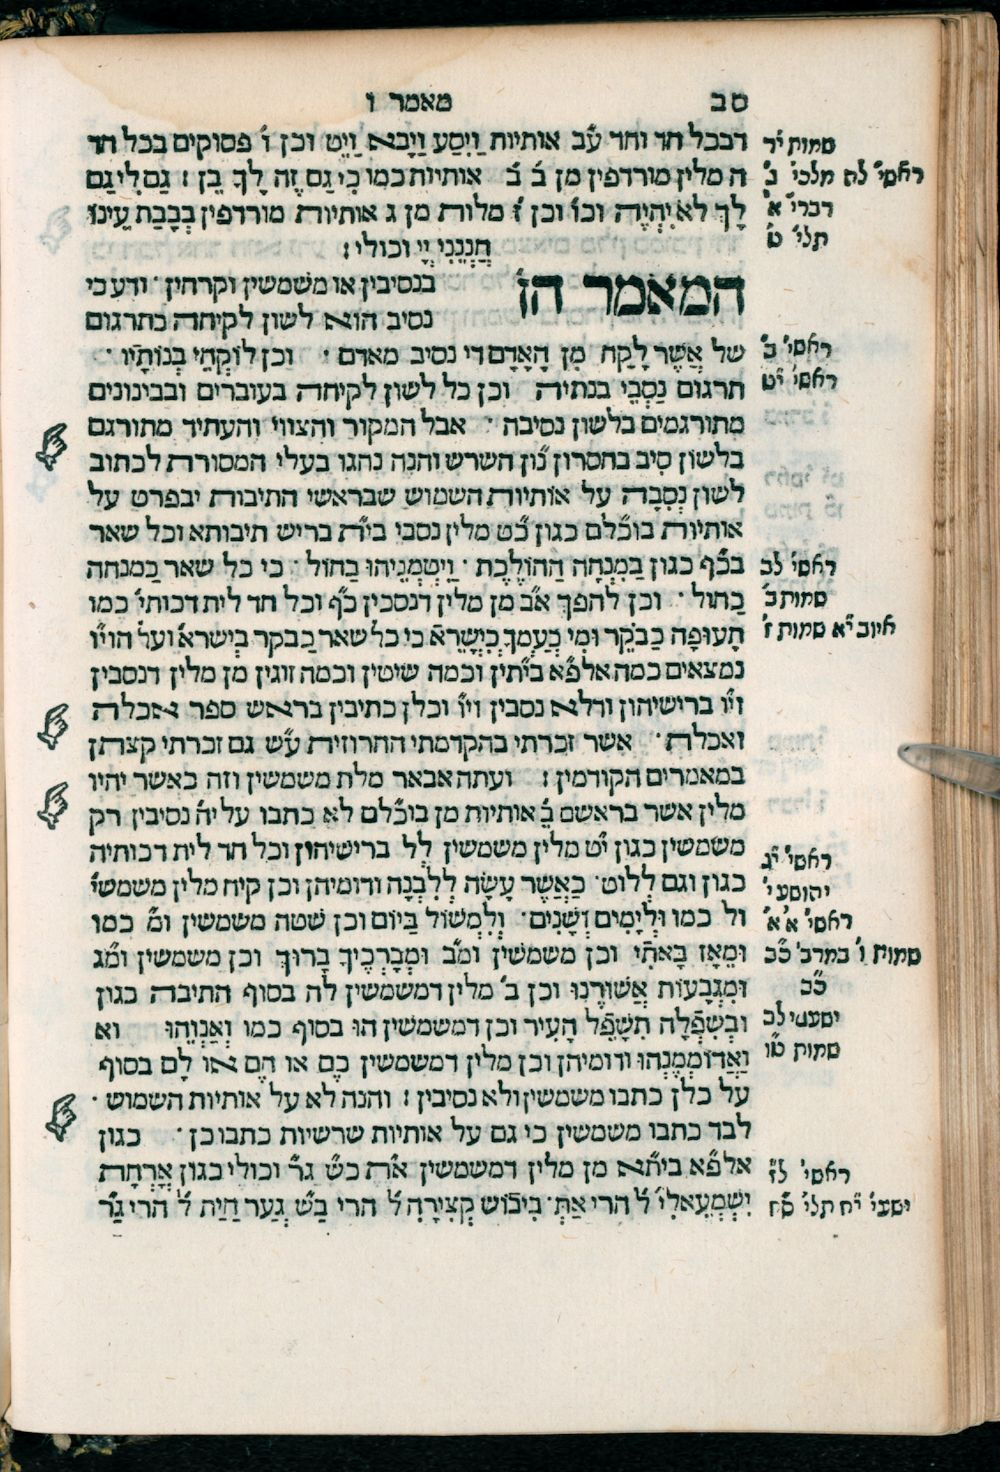 סב מאמר ו
דבכל חד וחד ע֗ב אותיות וַיִסַע וַיָבֹא וַיֵט וכן ו֗ פסוקים בכל חד
ה מלין מורדפין מן ב֗ ב֗ אותיות כמו כִי גַם זֶה לָךְ בֵן : גַם לִי גַם
לָךְ לֹא יִהְיֶה וכו֗ וכן ז֗ מלות מן ג אותיות מורדפין בְבָבַת עֵינוֹ
חָנְנֵנִי יְיָ וכולי :
המאמר הו֗ בנסיבין או משמשין וקרחין · ודע כי
נסיב הוא לשון לקיחה כתרגום
של אֲשֶר לָקַח מִן הָאָדָם די נסיב מאדם · וכן לוֹקְחֵי בְנוֹתָיו ·
תרגום נַסְבֵי בנתיה וכן כל לשון לקיחה בעוברים ובבינונים
מתורגמים בלשון נסיבה · אבל המקור והצווי והעתיד מתורגם
בלשון סִיב בחסרון נ֗ון השרש והנה נהגו בעלי המסורת לכתוב
לשון נְסִבָה על אותיות השמוש שבראשי התיבות יבפרט על
אותיות בוכ֗לם כגון כ֗ט מלין נסבי בי֗ת בריש תיבותא וכל שאר
בכ֗ף כגון בַמִנְחָה הַהוֹלֶכֶת · וַיִטְמְנֵיהוּ בַחוֹל · כי כל שאר כַמנחה
כַחול · וכן להפך א֗ב מן מלין דנסכין כ֗ף וכל חד לית דכותי֗ כמו
תָעוּפָה כַבֹקֶר וּמִי כְעַמְךָ כְיִשָרֵא֗ כי כל שאר כַבקר בְישרא֗ ועל הוי֗ו
נמצאים כמה אלפ֗א בי֗תין וכמה שיטין וכמה זוגין מן מלין דנסבין
וי֗ו ברישיהון ודלא נסבין וי֗ו וכלן כתיבין בראש ספר אכלה
ואכלה · אשר זכרתי בהקדמתי החרוזית ע֗ש גם זכרתי קצתן
במאמרים הקודמין : ועתה אבאר מלת משמשין וזה כאשר יהיו
מלין אשר בראשם ב֗ אותיות מן בוכ֗לם לא כתבו עליה֗ נסיבין רק
משמשין כגון י֗ט מלין משמשין לל ברישיהון וכל חד לית דכותיה
כגון וגם לְלוט · כַאֲשֶר עָשָה לְלִבְנָה ודומיהן וכן קיח מלין משמשי֗
ול כמו וּלְיָמִים וְשָנִים · וְלִמְשוֹל בַיוֹם וכן שטה משמשין ומ֗ כמו
וּמֵאָז בָאתִי וכן משמשין ומ֗ב וּמְבָרְכֶיךָ בָרוּךְ וכן משמשין ומ֗ג
וּמִגְבָעוֹת אֲשוּרֶנוּ וכן ב֗ מלין דמשמשין לה בסוף התיבה כגון
ובְשִפְלָה תִשְפַל הָעִיר וכן דמשמשין הוּ בסוף כמו וְאַנְוֵהוּ וא
וַאֲרוֹמְמֶנְהוּ ודומיהן וכן מלין דמשמשין כֶם או הֶם או לָם בסוף
על כלן כתבו משמשין ולא נסיבין : והנה לא על אותיות השמוש ·
לבד כתבו משמשין כי גם על אותיות שרשיות כתבו כן · כגון
אלפ֗א בית֗א מן מלין דמשמשין א֗ת ב֗ש ג֗ר וכולי כגון אָרְחַת
יִשְמְעֵאלִי֗ ל֗ הרי אַתְ · בִיבוֹש קְצִירָהּ ל֗ הרי בַ֗ש גְעַר חַיַת ל֗ הרי גַ֗ר
שמות י֗ד
ראשי֗ לח מלכי֗ ג֗
דברי֗ א֗
תלי֗ ט֗
ראשי֗ ב֗
ראשי֗ י֗ט
ראשי֗ לב
שמות ב֗
איוב י֗א שמות ז֗
ראשי֗ י֗ג
יהושע י֗
ראשי֗ א֗ א֗
שמות ו֗ במדב֗ כ֗ב
כ֗ב
ישעי֗ לב
שמות ט֗ו
ראשי֗ ל֗ז
ישעי֗ י֗ח תלי֗ ס֗ח